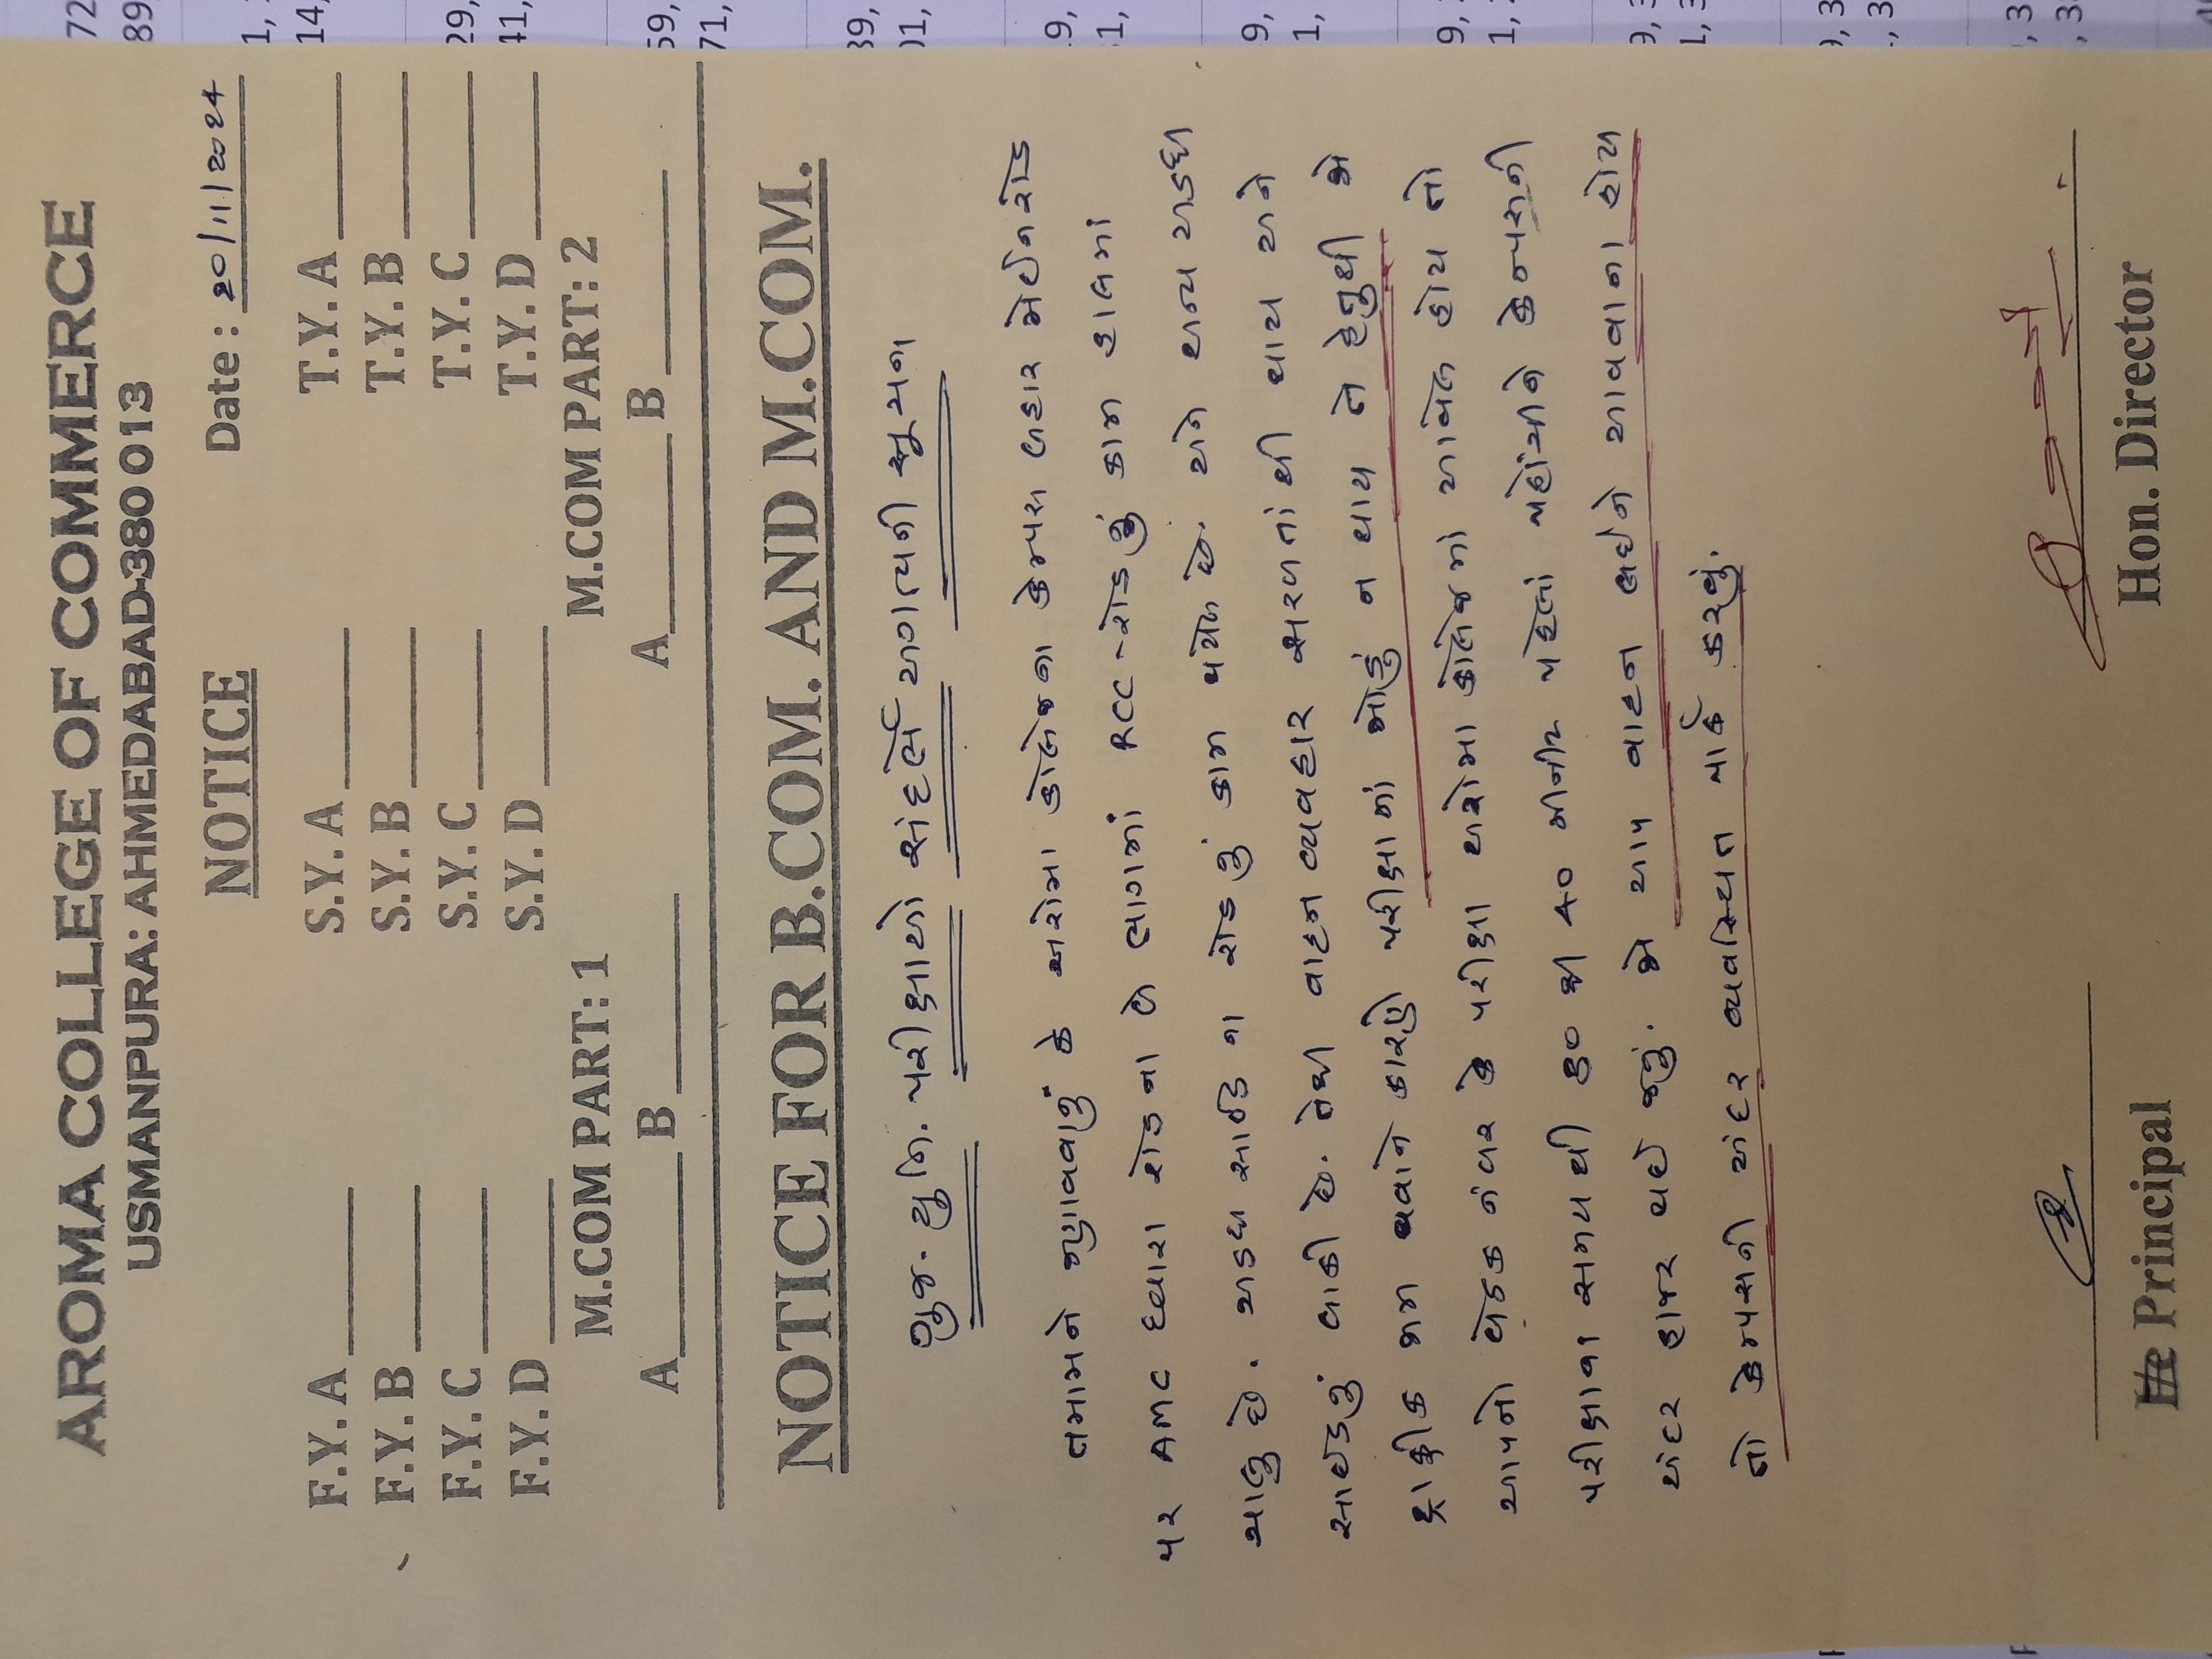 AROMA COLLEGE OF COMMERCE
USMANPURA: AHMEDABAD-380 013
NOTICE
Date : 20/11/2024
F.Y. A S.Y. A T.Y. A
F.Y. B S.Y. B T.Y. B
F.Y. C S.Y. C T.Y. C
F.Y. D S.Y. D T.Y. D
M.COM PART: 1 M.COM PART: 2
A B A B
NOTICE FOR B.COM. AND M.COM.
ગુજ. યુનિ. પરીક્ષાઓ સંદર્ભે અગત્યની સૂચના
તમામને જણાવવાનું કે અરોમા કોલેજના કેમ્પસ બહાર મેઈનરોડ
પર AMC દ્વારા રોડના બે ભાગમાં RCC-રોડનું કામ હાલમાં
ચાલુ છે. અડધા સાઈડ ના રોડનું કામ પત્યું છે. અને અન્ય અડધા
સાઈડનું બાકી છે. તેથી વાહન વ્યવહાર સરળતાંથી થાય અને
ટ્રાફીક જામ થવાને કારણે પરીક્ષામાં મોડું ન થાય તે હેતુથી જે
આપનો બેઠક નંબર કે પરીક્ષા અરોમા કોલેજમાં આવેલ હોય તો
પરીક્ષાના સમયથી 30 થી 40 મીનીટ પહેલાં પહોંચીને કેમ્પસની
અંદર હાજર થઈ જવું. જો આપ વાહન લઈને આવવાના હોય
તો કેમ્પસની અંદર વ્યવસ્થિત પાર્ક કરવું.
Principal Hon. Director